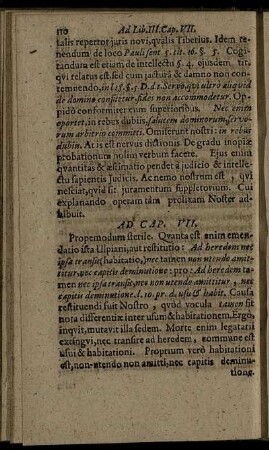 110 Ad Lib. III. Cap. VII.
talis repertor juris novi, qualis Tibetius. Idem re-
nendum de loco Pauli sent 5. tit. 16. §. 5. Cogi-
tandum est etiam de intellectu §. 4. ejusdem tit.
qui relatus est, sed cum jacturâ & damno non con-
temnendo, in l. 18. §. 5. D. de
conscetur, fides non accommodetur. Op-
pidò conformiter cum superioribus. Nec enim
oportet, in rebus dubiis, salutem dominorum, servo-
rum arbitrio committi. Omiserunt nostri: in rebus
dubiis. At is est nervus dictionis De gradu inopiæ
probationum hojus verbum facere. Ejus enim
quantitas & æstimatio pendet à judicio & intelle-
ctu sapientis Judicis. Ac nemo nostrum est, qui
nesciat, quid sit juramentum suppletorium. Cui
explanando operam tàm prolixam Noster ad-
hibuit.
AD CAP. VII.
Propemodum sterile. Quanta est enim emen-
datio ista Ulpiani, aut restitutio: Ad heredem nec
ipsa transit (habitatio,) nec tamen non utendo amit-
titur, nec capitis deminutione: pro: Ad heredem ta-
men nec ipsa transit, nec non utendo amittitur, nec
capitis deminutione. l. 10. pr. d. usu & habit. Causa
restituendi fuit Nostro, quod vocula tamen sit
nota differentiæ inter usum & habitationem. Ergo,
inqvit, mutavit illa sedem. Morte enim legatarii
extingvi, nec transire ad heredem, commune est
usui & habitationi. Proprium verò habitationi
est, non-utendo non amitti, nec capitis deminu-